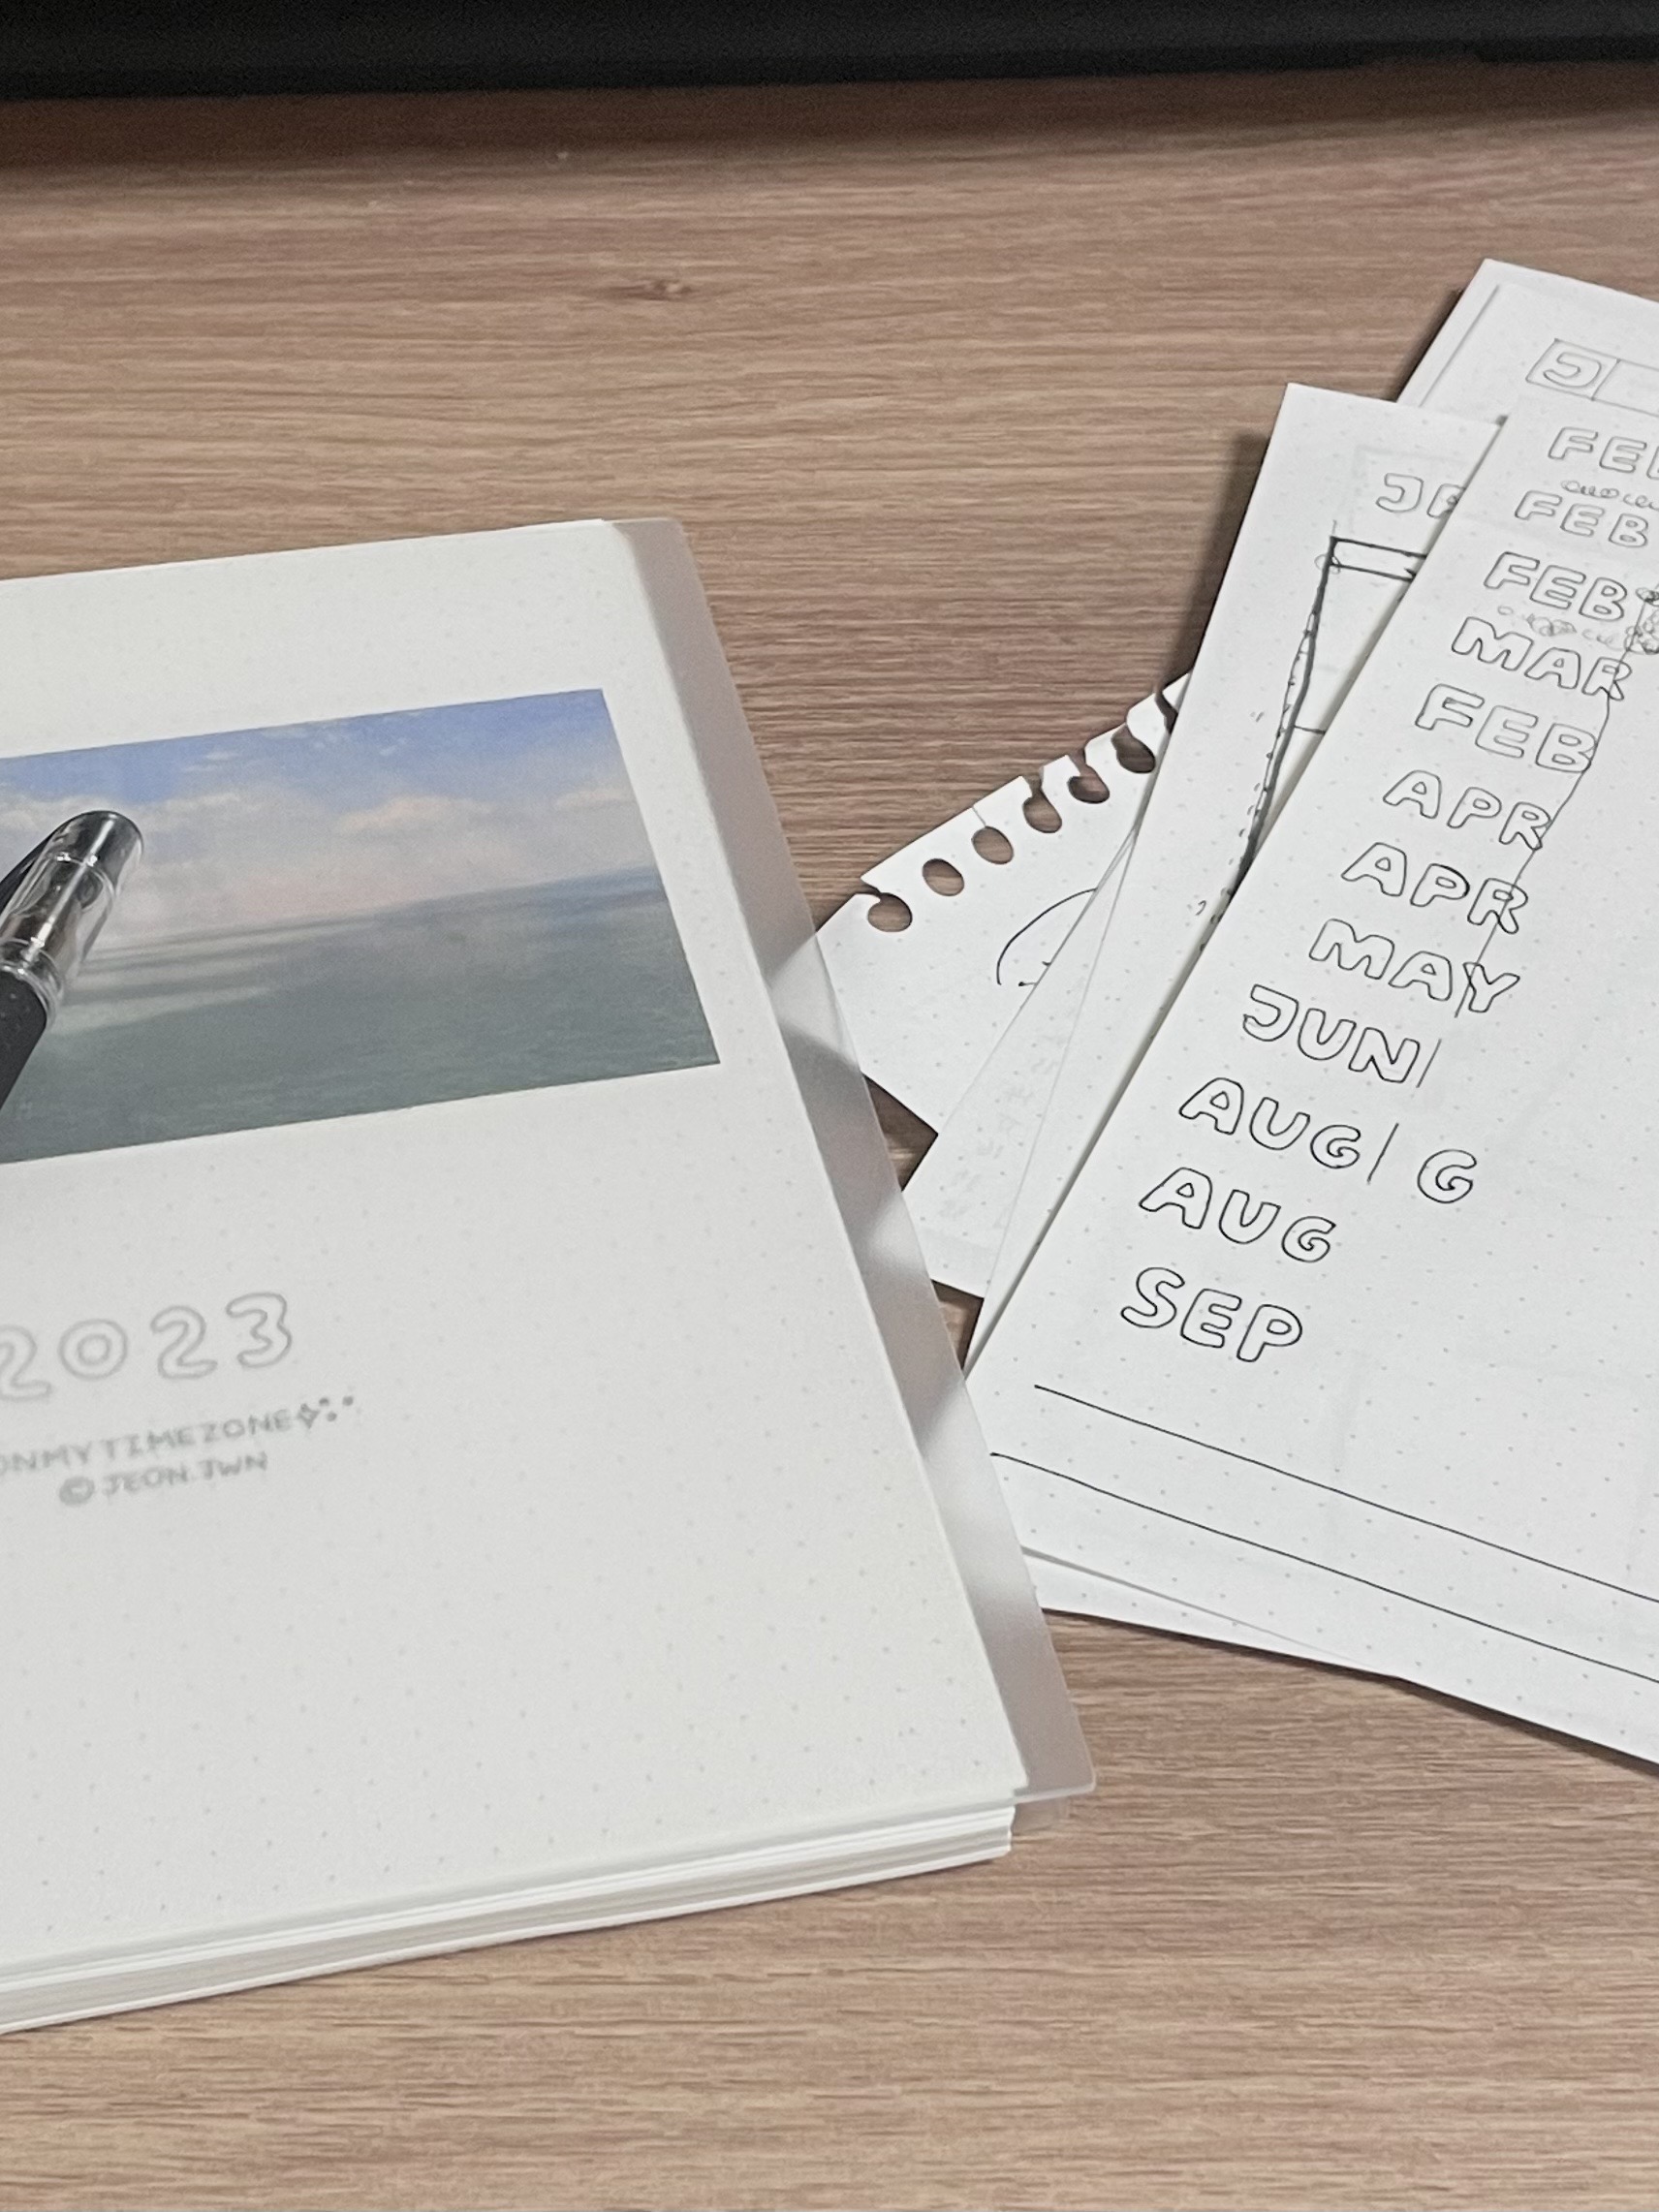 2023
ONMYTIMEZONE
© JEON.JWN
J
JA
FEB
FEB
MAR
FEB
APR
APR
MAY
JUN
AUG G
AUG
SEP